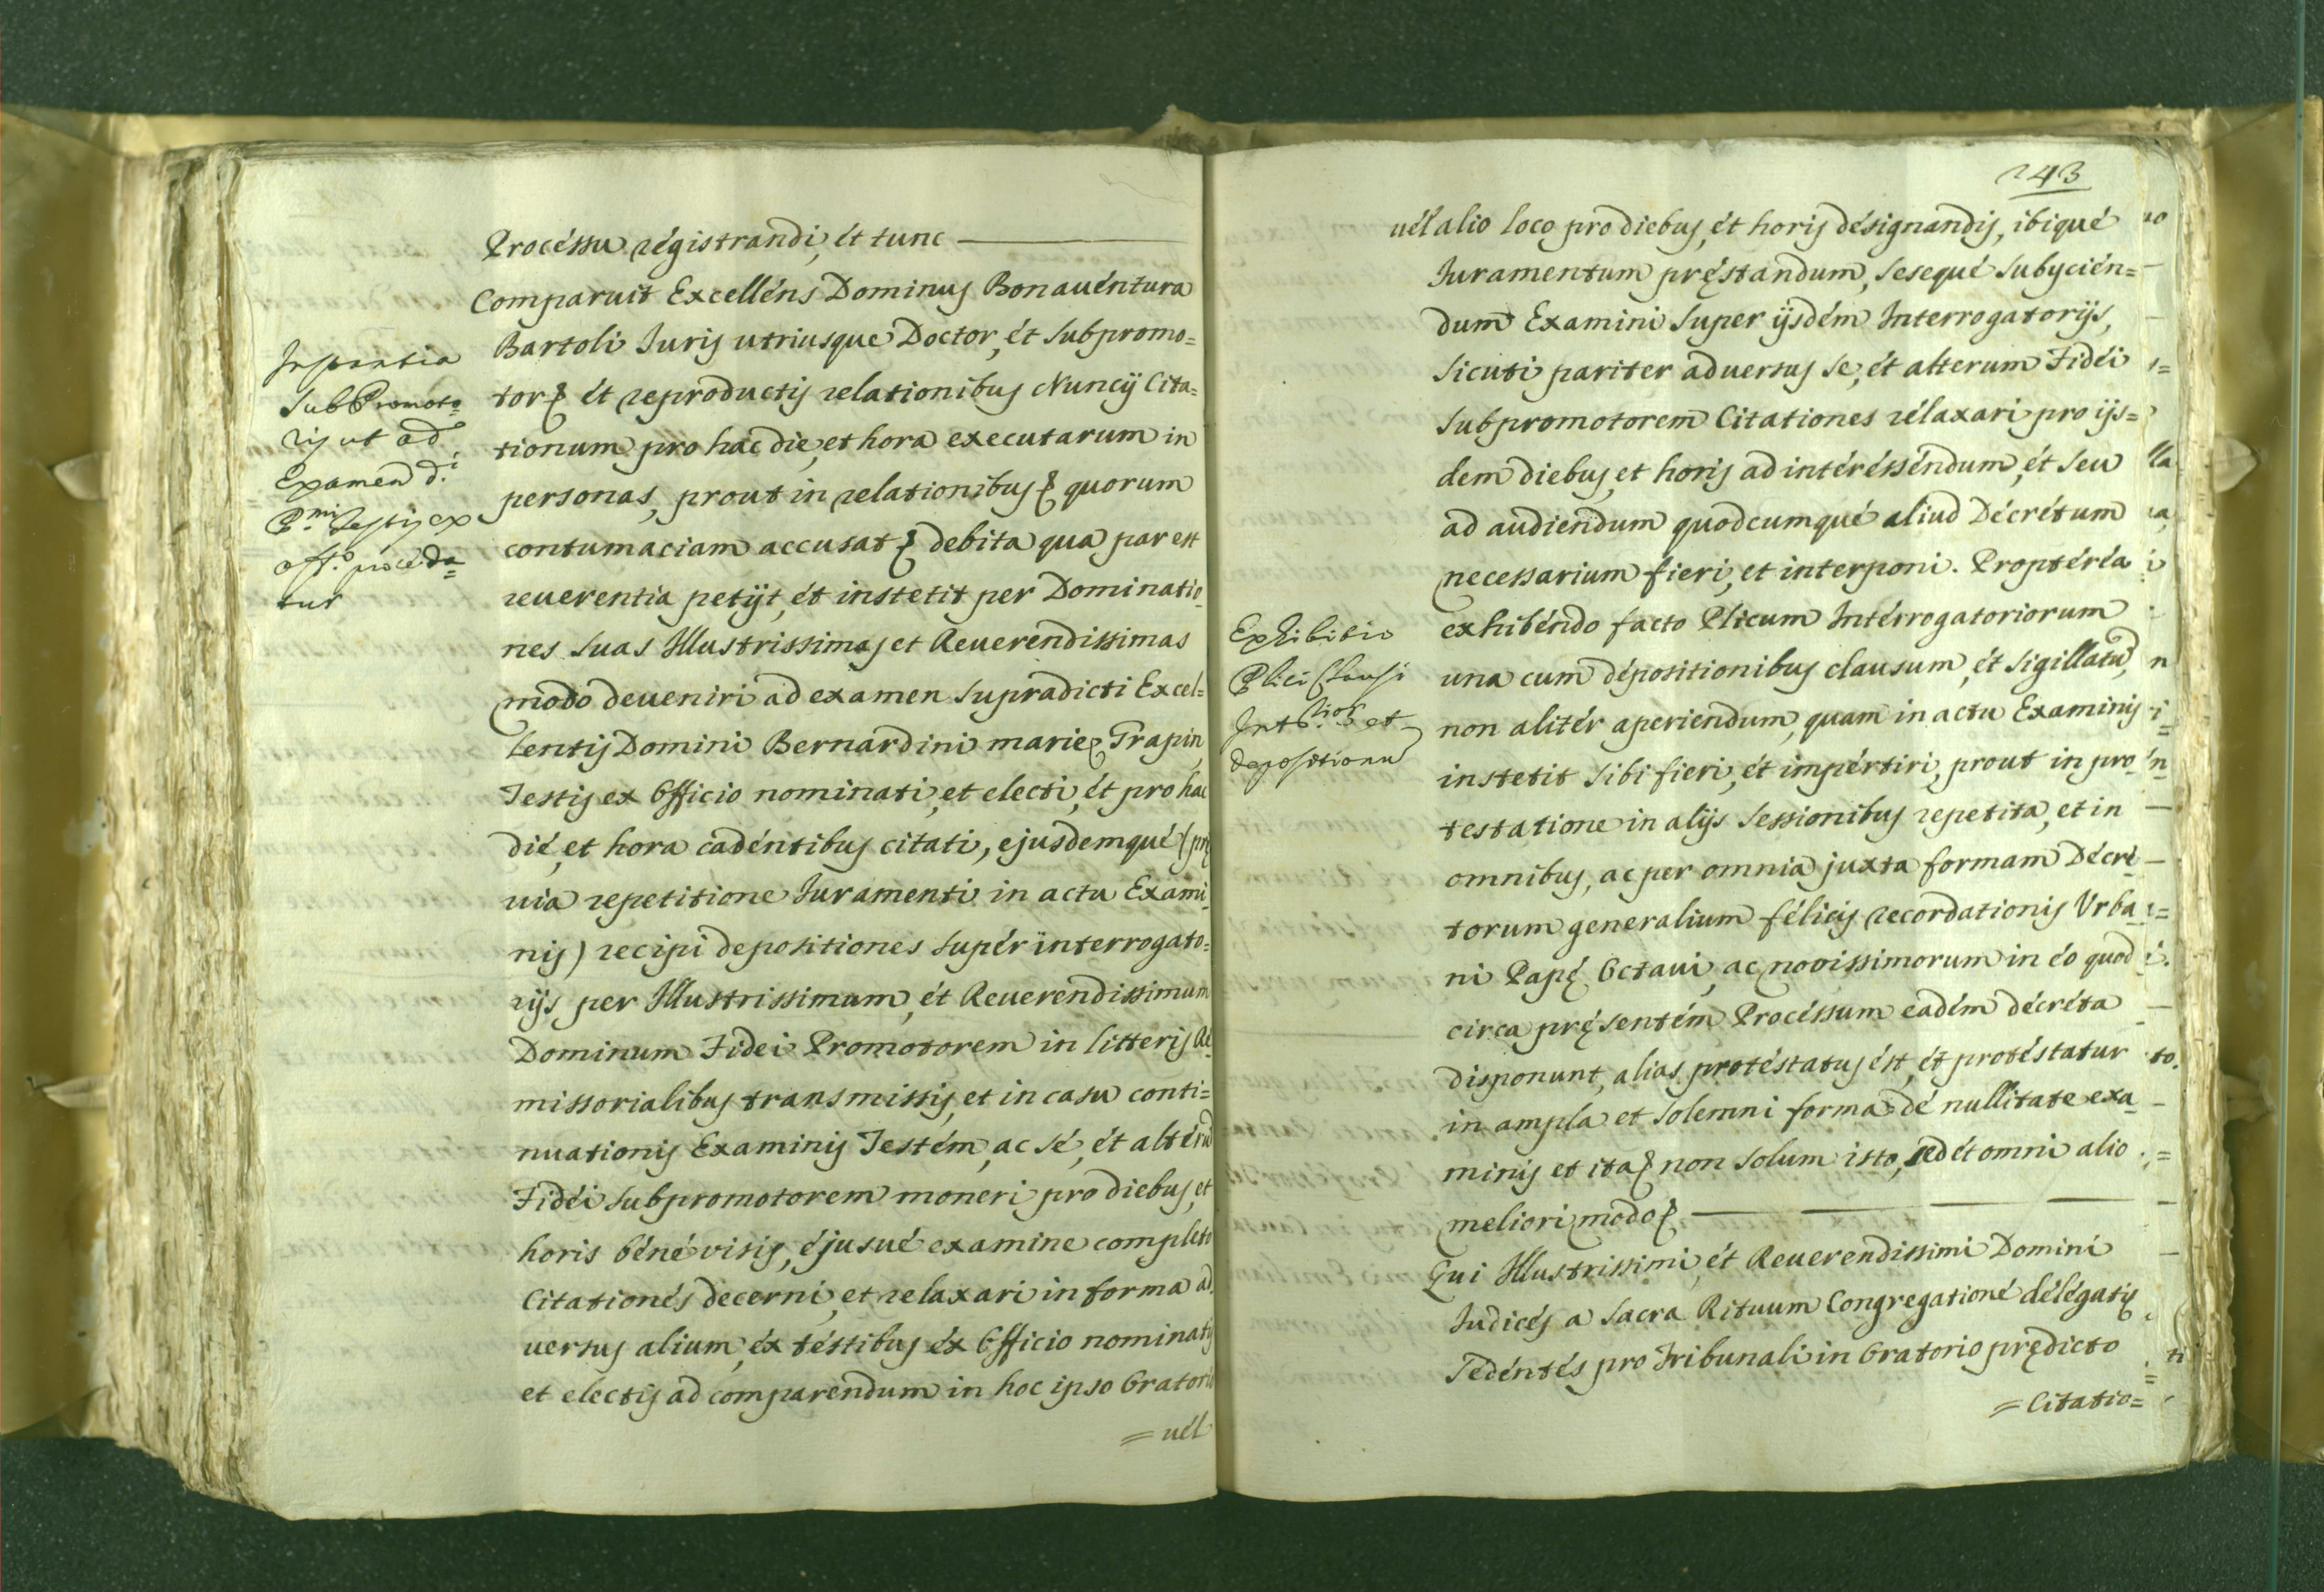 Procéssu régistrandi, ét tunc
Comparuit Excelléns Dominus Bonauéntura
Bartoli Iuris utriusque Doctor, ét subpromo=
tor& ét reproductis relationibus Nuncij Cita=
tionum pro hac die, et hora executarum in
personas, prout in relationibus& quorum
contumaciam accusat& debita qua par est
reuerentia petijt, ét instetit per Dominatio=
nes suas Illustrissimas et Reuerendissimas
modo deueniri ad examen supradicti Excel=
lentis Domini Bernardini marię Trapin,
Testis ex Officio nominati, et electi, ét pro hac
dié, et hora cadéntibus citati, ejusdemqué (prę
uia repetitione Iuramenti in actu Exami=
nis) recipi depositiones supér interrogato=
rijs per Illustrissimum, ét Reuerendissimum
Dominum Fidei Promotorem in litteris Re=
missorialibus transmissis, et in casu conti=
nuationis Examinis Testém, ac sé, ét altérũ
Fidéi subpromotorem moneri pro diebus, et
horis béné visis, éjusué examine completo
Citationés decerni, et relaxari in forma ad=
uersus alium, éx téstibus éx Officio nominatis
et electis ad comparendum in hoc ipso Oratorio
= uél
Instantia
SubPromoto=
ris ut ad
Examen d.i
P.mi Testis ex
off.o proceda=
tur
243
uél alio loco pro diebus, ét horis désignandis, ibiqué
Iuramentum pręstandum, sesequé subycién=
dum Examini super ijsdém Interrogatorijs,
sicuti pariter aduersus se, ét alterum Fidéi
subpromotorem Citationes rélaxari pro ijs=
dem diebus, et horis ad intéréssendum, ét seu
ad audiendum quodcumqué aliud Décrétum
necessarium fieri, et interponi. Proptéréa
exhibéndo facto Plicum Intérrogatoriorum
una cum dépositionibus clausum, ét sigillatũ,
non alitér aperiendum, quam in actu Examinis
instetit sibi fieri, ét impértiri, prout in pro=
testatione in alijs sessionibus repetita, et in
omnibus, ac per omnia juxta formam Décré=
torum generalium félicis recordationis Vrba=
ni Papę Octaui, ac novissimorum in éo quod
circa pręsentém Procéssum eadém décréta
disponunt, alias protéstatus ést, ét protéstatur
in ampla et solemni forma dé nullitate exa=
minis et ita& non solum isto, sed ét omni alio
meliori modo&
Qui Illustrissimi, ét Reuerendissimi Domini
Iudicés a Sacra Rituum Congregationé délégatis
Sedéntés pro Tribunali in Oratorio prędicto
= Citatio=
Exhibitio
Plici Clausi
Int.tior et
depositionũ